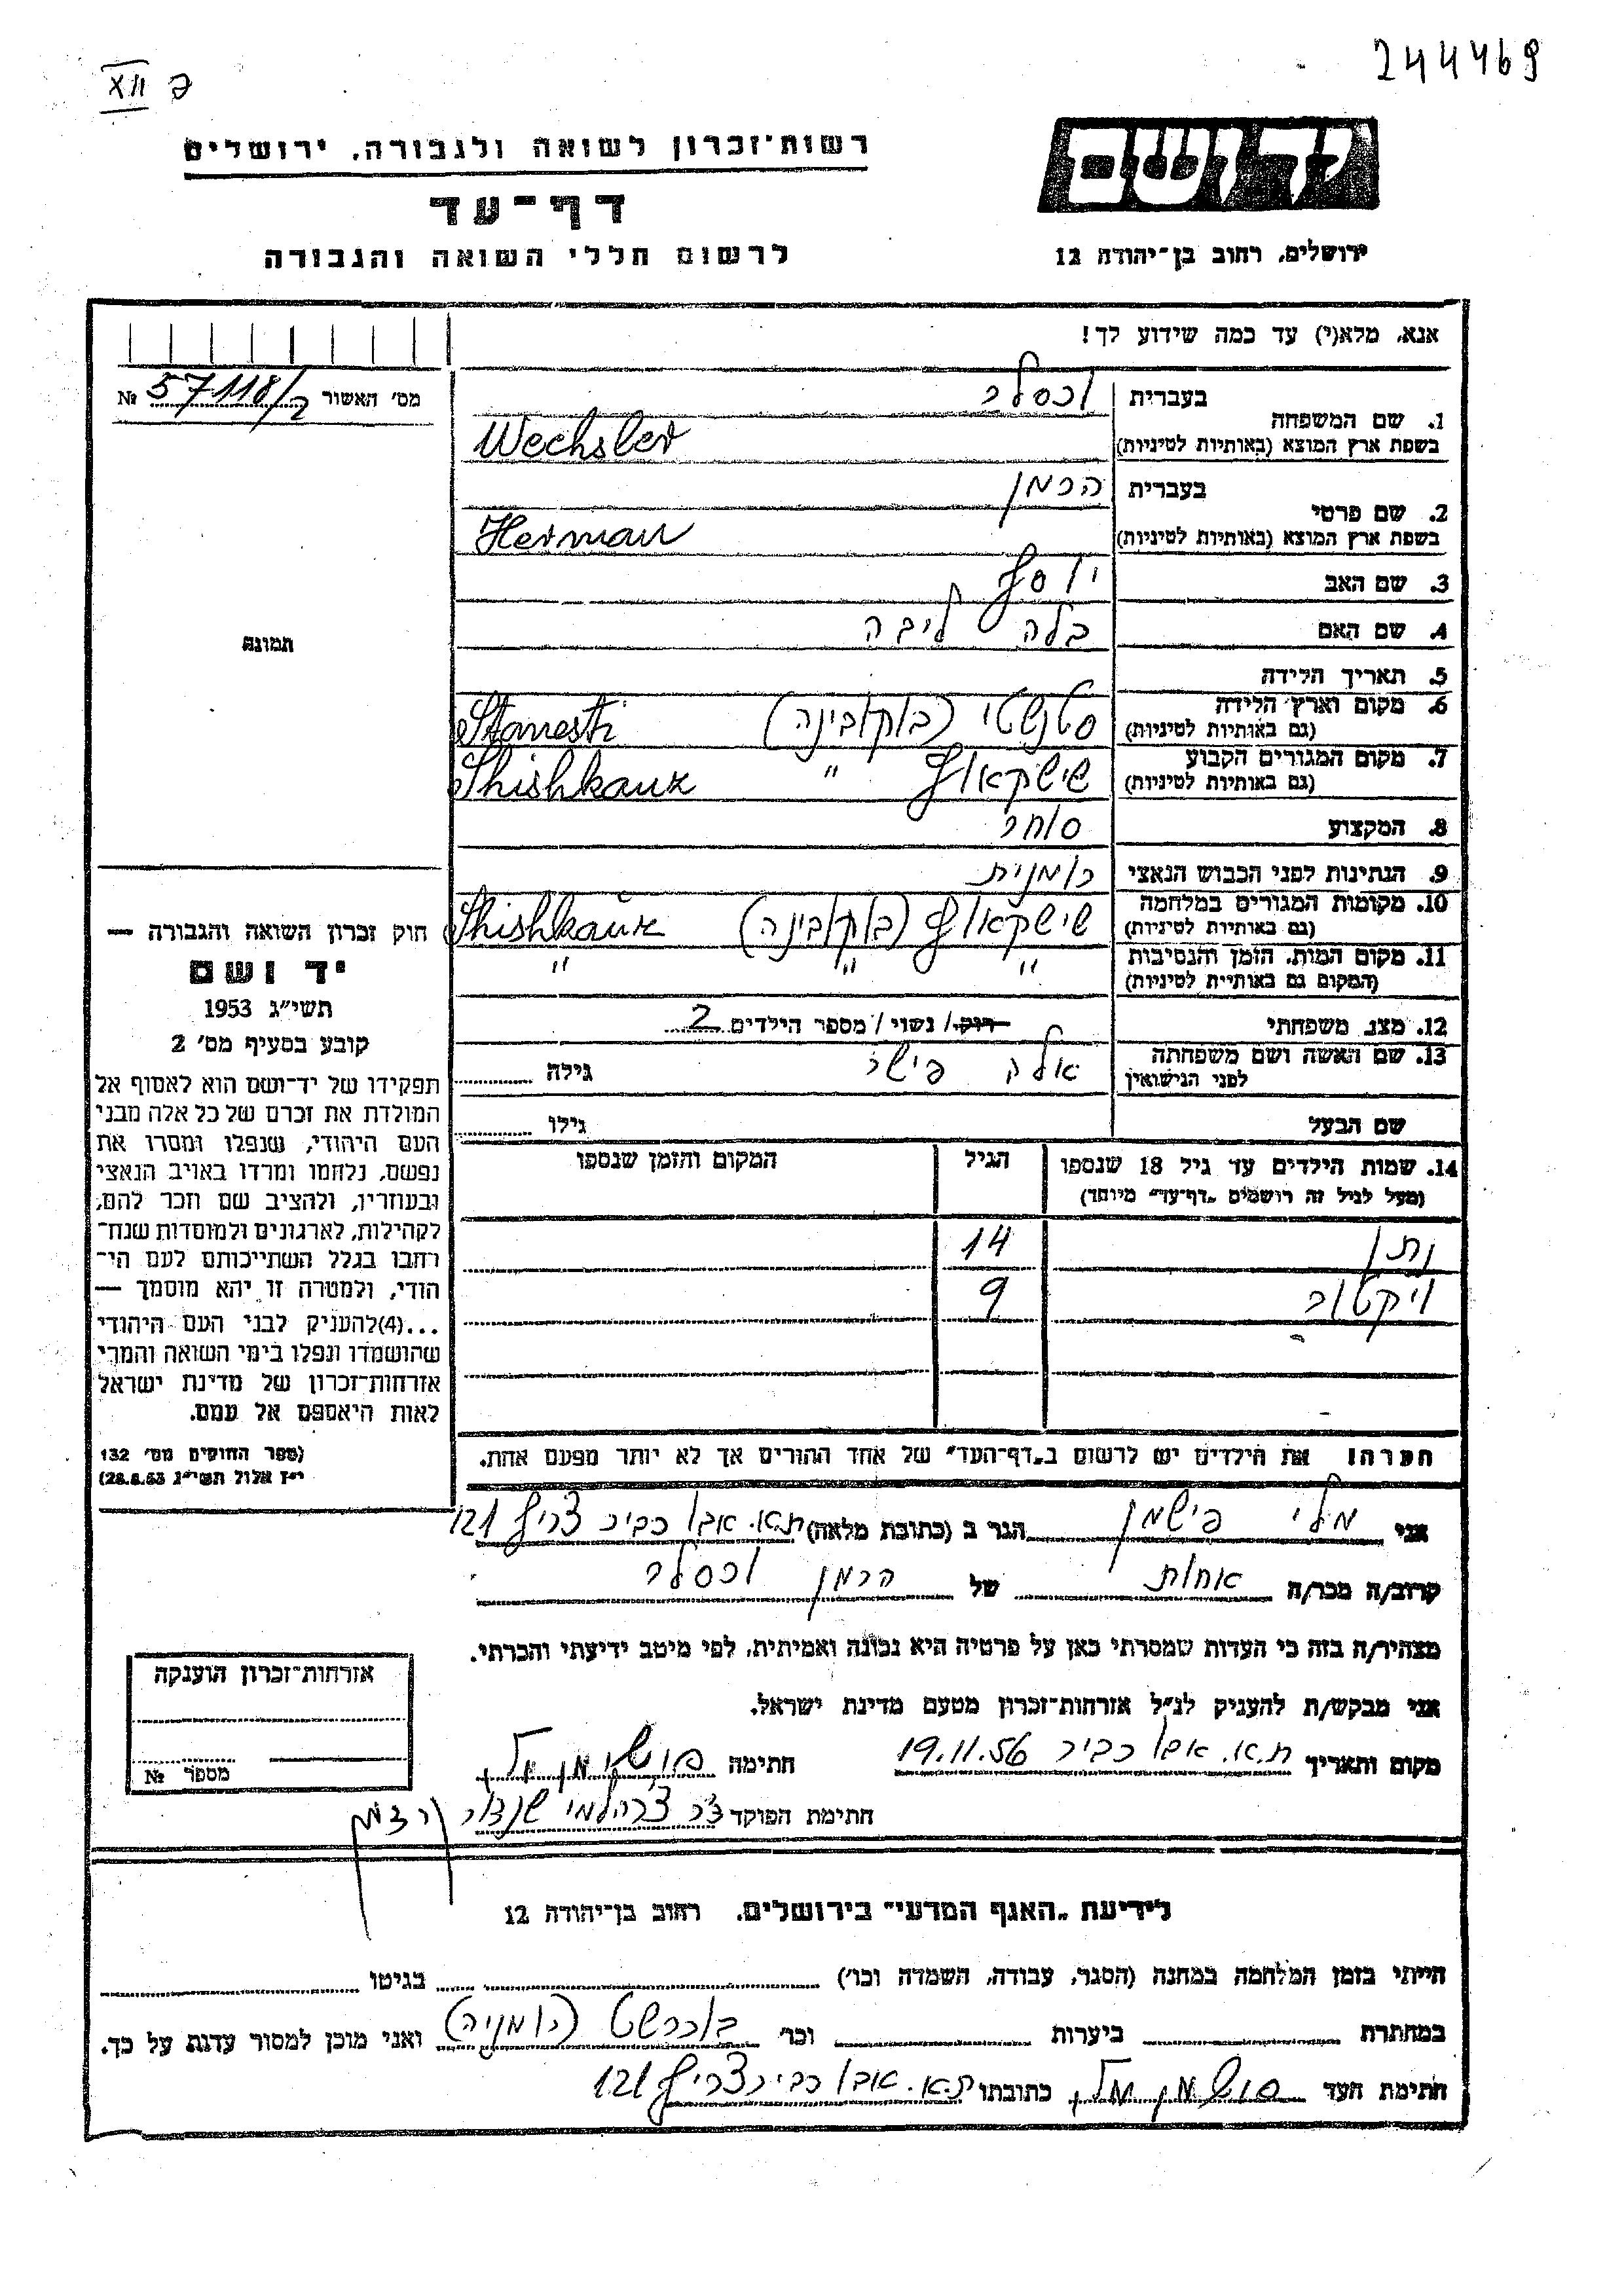 244469
XII ק
רשות־זכרון לשואה ולגבורה, ירושלים
דף־עד
לרשום חללי השואה והגבורה
יד ושם
ירושלים, רחוב בן־יהודה 12
אנא, מלא(י) עד כמה שידוע לך!
מס׳ האשור № 57118/2
1. שם המשפחה
בעברית וכסלר
בשפת ארץ המוצא (באותיות לטיניות) Wechsler
2. שם פרטי
בעברית הרמן
בשפת ארץ המוצא (באותיות לטיניות) Herman
3. שם האב יוסף
4. שם האם בלה ליבה
5. תאריך הלידה
6. מקום וארץ הלידה סטנשטי (בוקובינה) Stanesti
(גם באותיות לטיניות)
7. מקום המגורים הקבוע שישקאוץ " Shishkauz
(גם באותיות לטיניות)
8. המקצוע סוחר
9. הנתינות לפני הכבוש הנאצי רומנית
10. מקומות המגורים במלחמה שישקאוץ (בוקובינה) Shishkauz
(גם באותיות לטיניות)
11. מקום המות, הזמן והנסיבות " " "
(המקום גם באותיות לטיניות)
12. מצב משפחתי רוק / נשוי / מספר הילדים 2
13. שם האשה ושם משפחתה אלה פישר גילה
לפני הנישואין
שם הבעל גילו
14. שמות הילדים עד גיל 18 שנספו הגיל המקום והזמן שנספו
(מעל לגיל זה רושמים „דף־עד״ מיוחד)
נתן 14
ויקטור 9
הערה! את הילדים יש לרשום ב„דף־העד״ של אחד ההורים אך לא יותר מפעם אחת.
תמונה
חוק זכרון השואה והגבורה —
יד ושם
תשי״ג 1953
קובע בסעיף מס׳ 2
תפקידו של יד־ושם הוא לאסוף אל
המולדת את זכרם של כל אלה מבני
העם היהודי, שנפלו ומסרו את
נפשם, נלחמו ומרדו באויב הנאצי
ובעוזריו, ולהציב שם וזכר להם,
לקהילות, לארגונים ולמוסדות שנח־
רבו בגלל השתייכותם לעם הי־
הודי, ולמטרה זו יהא מוסמך —
...(4) להעניק לבני העם היהודי
שהושמדו ונפלו בימי השואה והמרי
אזרחות־זכרון של מדינת ישראל
לאות היאספם אל עמם.
(ספר החוקים מס׳ 132
י״ז אלול תשי״ג 28.8.53)
אני מלי פישמן הגר ב (כתובת מלאה) ת.א. אבו כביר צריף 121
קרוב/ה מכר/ה אחות של הרמן וכסלר
מצהיר/ה בזה כי העדות שמסרתי כאן על פרטיה היא נכונה ואמיתית, לפי מיטב ידיעתי והכרתי.
אני מבקש/ת להעניק לנ״ל אזרחות־זכרון מטעם מדינת ישראל.
מקום ותאריך ת.א. אבו כביר 19.11.56 חתימה
חתימת הפוקד
אזרחות־זכרון הוענקה
מספר №
לידיעת „האגף המדעי״ בירושלים, רחוב בן־יהודה 12
הייתי בזמן המלחמה במחנה (הסגר, עבודה, השמדה וכו׳) בגיטו
במחתרת ביערות וכו׳ בוכרשט (רומניה) ואני מוכן למסור עדות על כך.
חתימת העד כתובתו ת.א. אבו כביר צריף 121